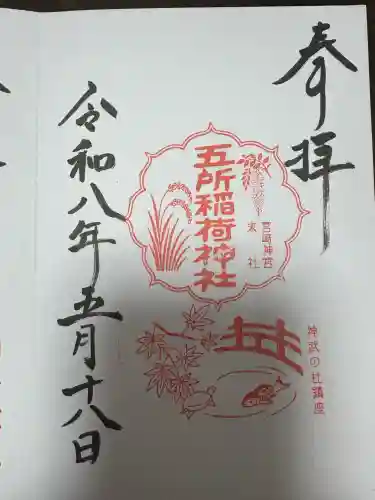 奉拝
宮崎神宮
末社
五所稲荷神社
神武の杜鎮座
令和八年五月十八日